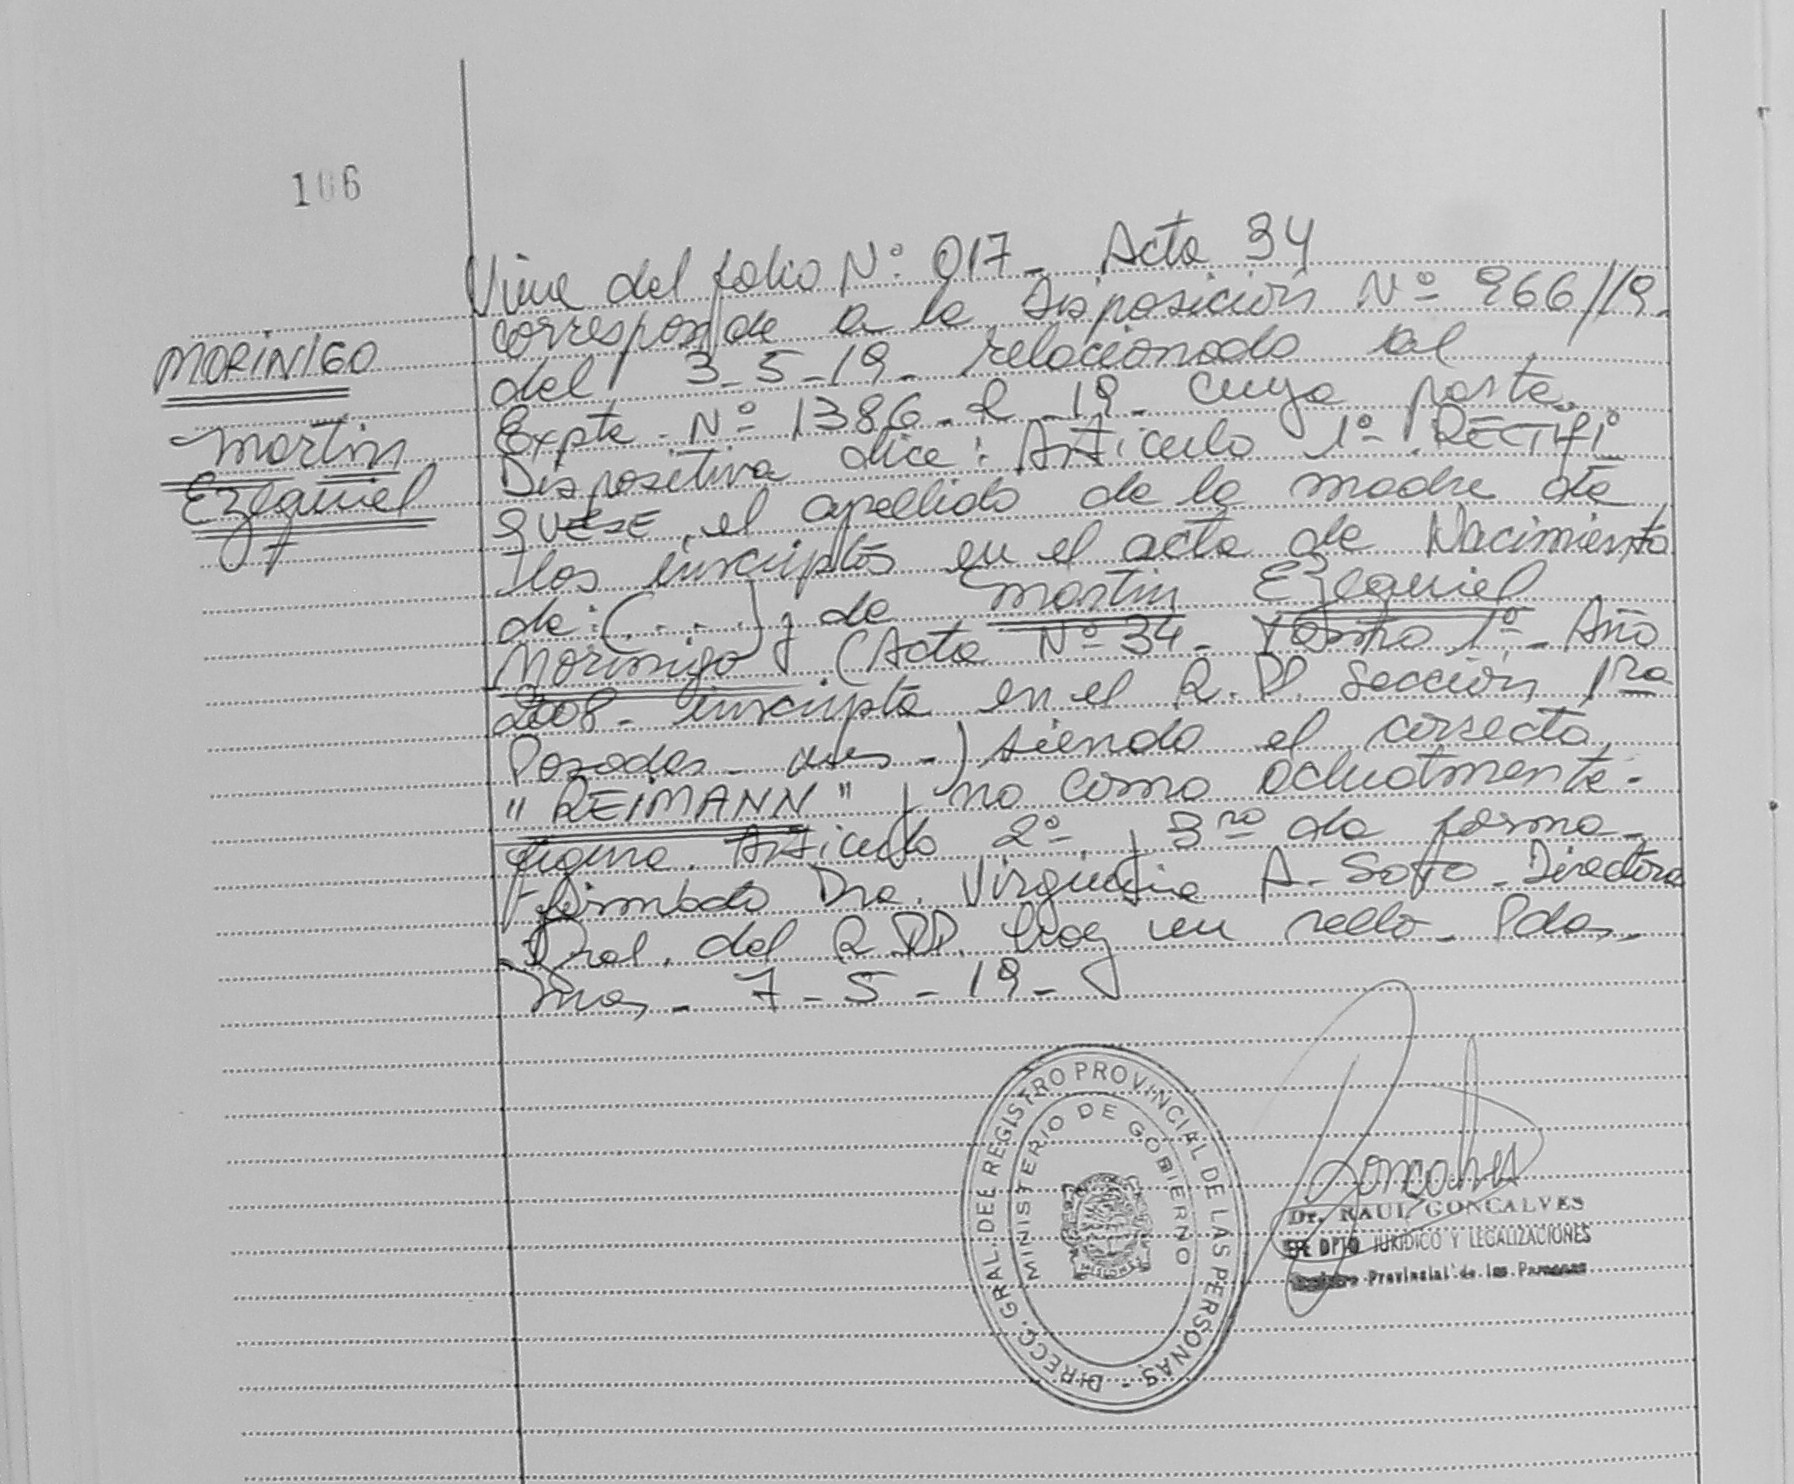 106
Viene del folio Nº: 017- Acta 34
corresponde a la Disposición Nº 966/19.
MORINIGO
del 3-5-19- relacionado al
Martin
Expte. Nº 1386-R-19- cuya parte
Ezequiel
Dispositiva dice: Artículo 1º- RECTIFI
QUESE, el apellido de la madre de
los inscriptos en el acta de Nacimiento
de: (. . . .) y de Martin Ezequiel
Morinigo, (Acta Nº 34- Tomo 1º- Año
2008- inscripta en el R.PP. Sección 1ra
Posadas- Mnes-) siendo el correcto
"REIMANN" y no como actualmente-
figura. Artículo 2º y 3ro de forma-
Firmado Dra. Virginia A- Soto- Directora
Gral. del R.PP. hay un sello- Pdas,
Mnes,- 7-5-19-
DIRECC. GRAL. DE REGISTRO PROVINCIAL DE LAS PERSONAS -
MINISTERIO DE GOBIERNO
MISIONES
Goncalves
Dr. RAUL GONCALVES
JEFE DPTO JURIDICO Y LEGALIZACIONES
Registro Provincial de las Personas